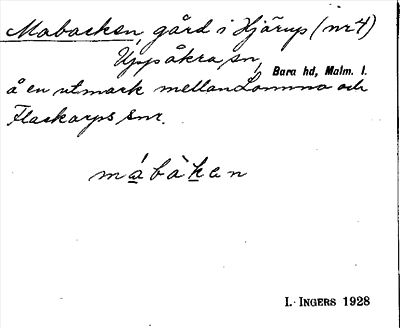 Mabacken, gård i Hjärup (nr 4)
Uppåkra sn, Bara hd, Malm. l.
å en utmark mellan Lomma och
Flackarps snr.
mábàken
I. INGERS 1928